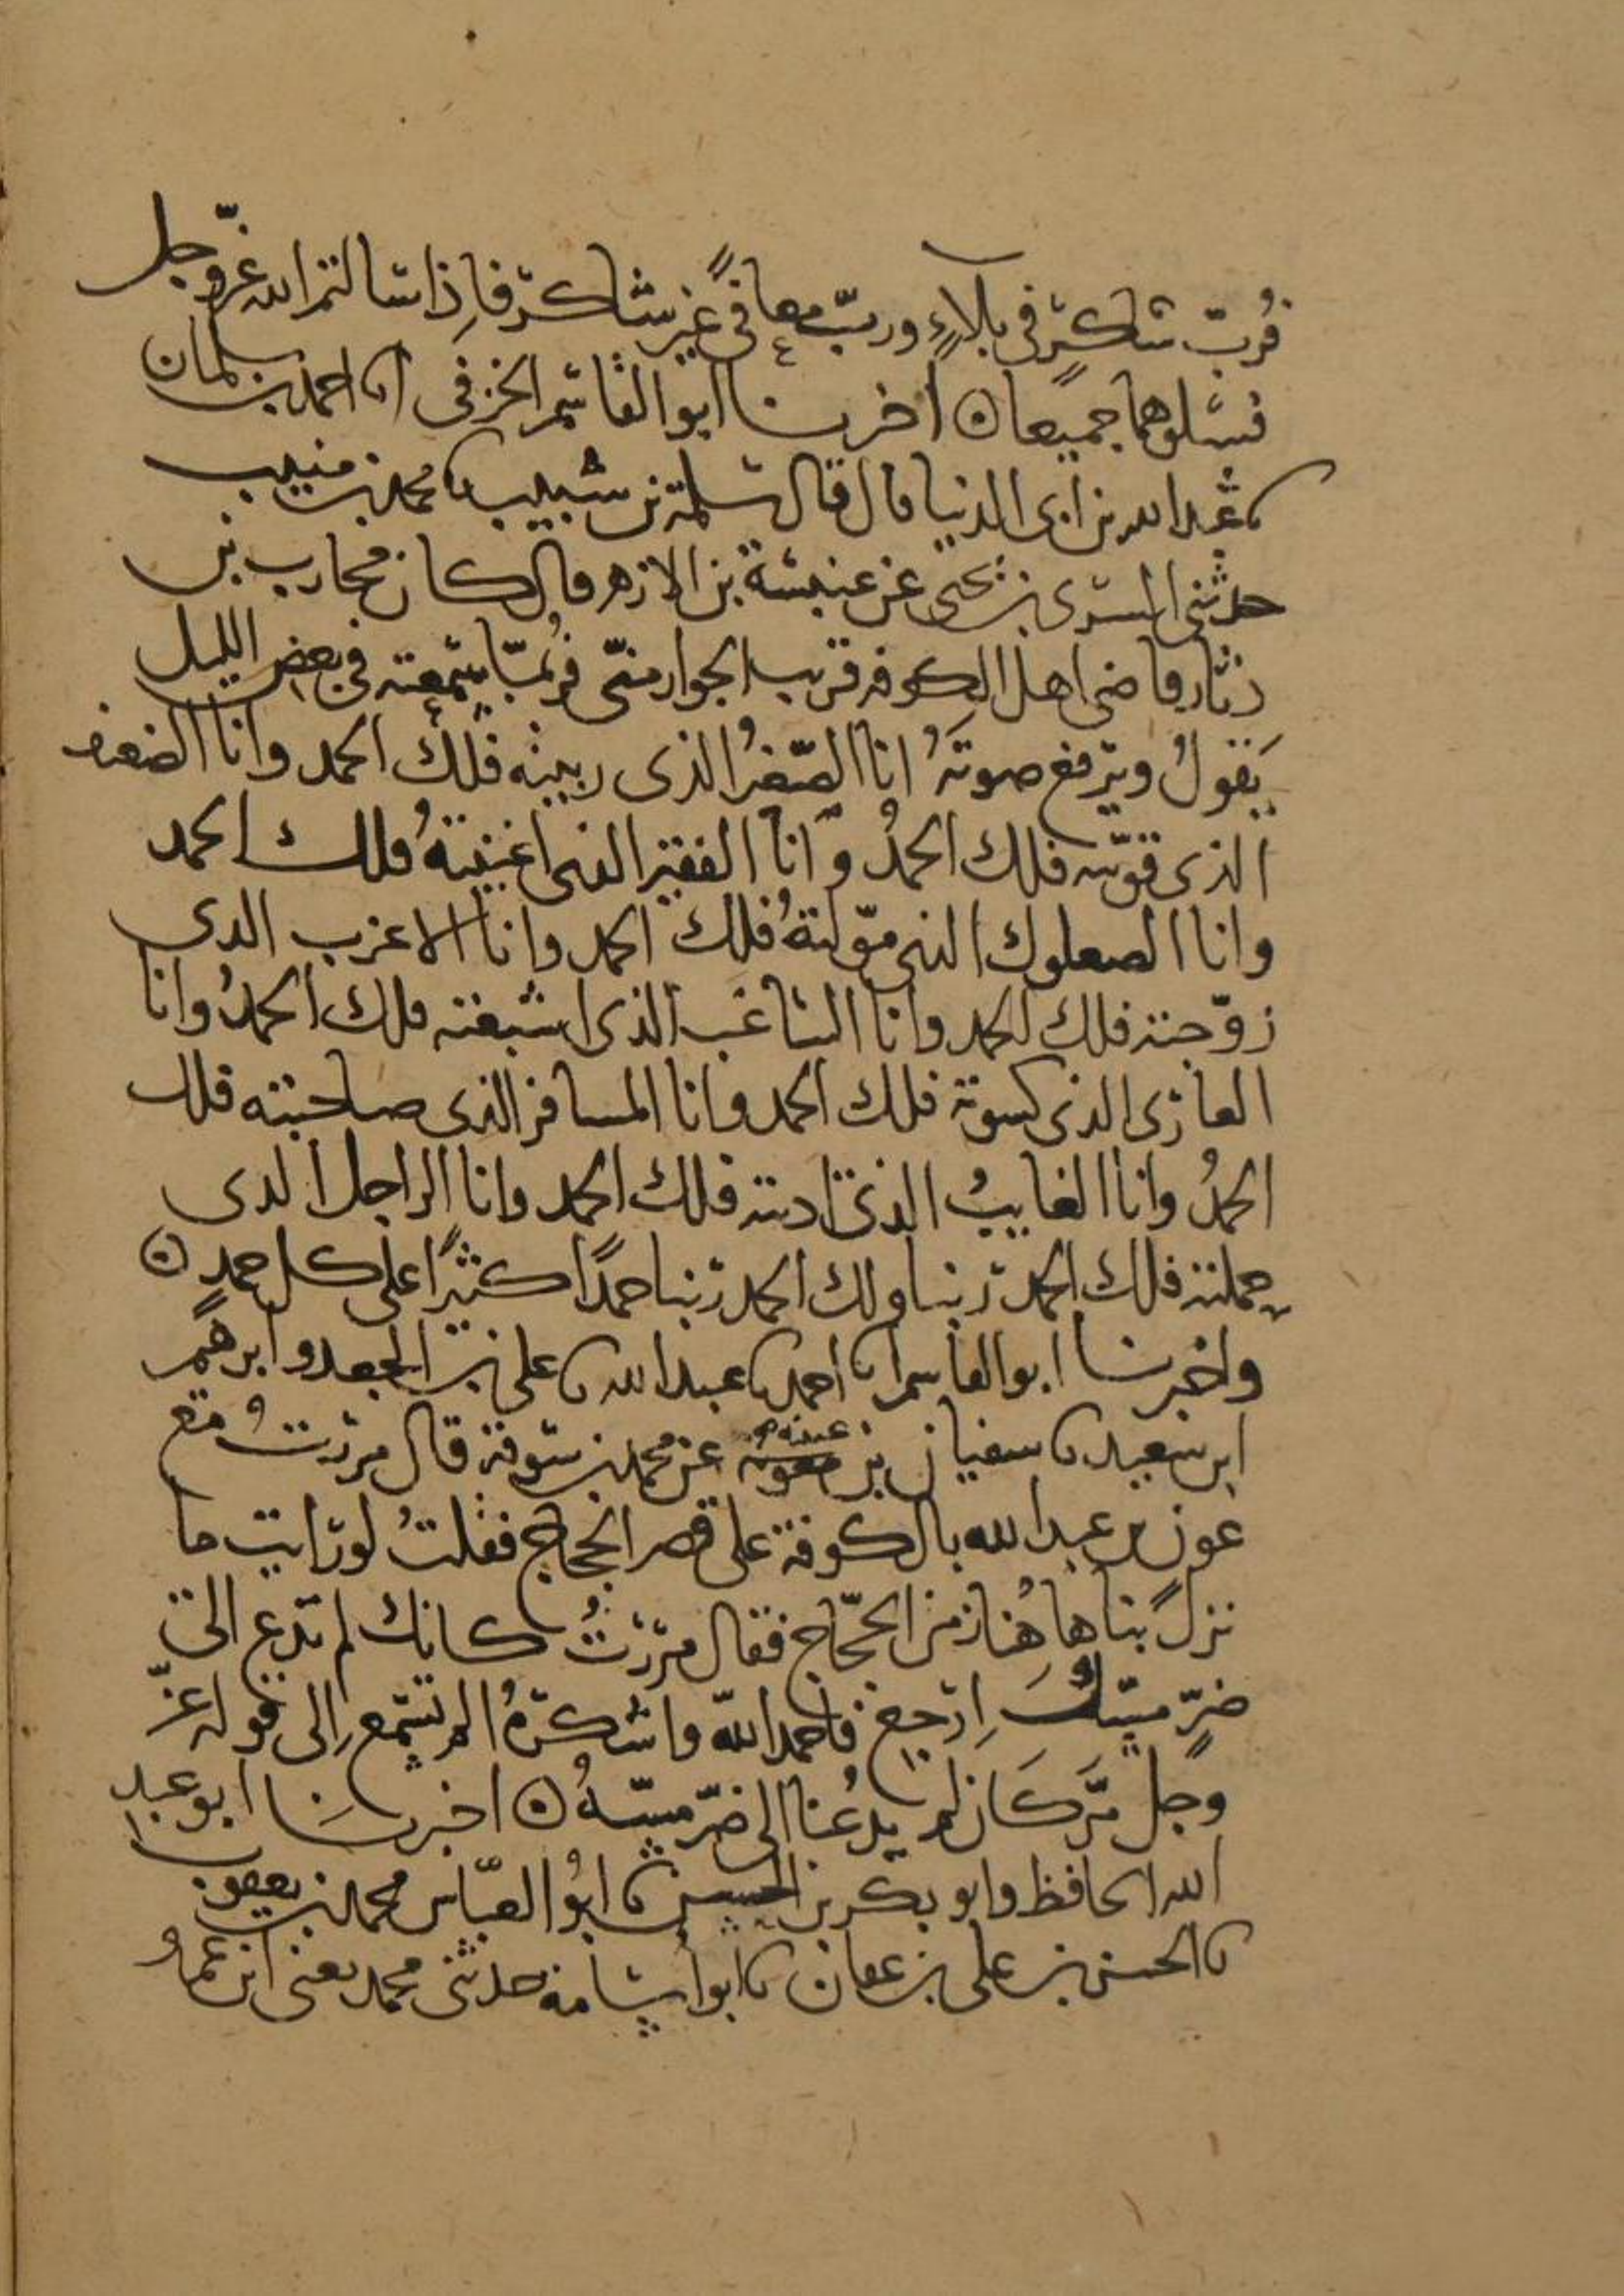 فرُبّ شاكرٍ في بلاءٍ وربّ معافىً غير شاكر فإذا سالتم الله عزّ وجل
فسلوهما جميعًا ۞ اخبرنا ابو القاسم الخرفى انا احمد بن سلمان
نا عبد الله بن ابى الدنيا قال قال سلمة بن شبيب نا محمد بن منيب
حدثنى السرى بن يحيى عن عنبسة بن الازهر قال كان محارب بن
دثار قاضى اهل الكوفه قريب الجوار منّى فرُبمّا سمعته في بعض الليل
يَقولُ ويرفع صوتَهُ انا الصّغيرُ الذى ربيته فلك الحمد وانا الضعيف
الذى قوّيته فلك الحمدُ وانا الفقير الذى اغنيتهُ فلك الحمد
وانا الصعلوك الذى موّلتهُ فلك الحمد وانا الاعزب الذى
زوّجته فلك الحمد وانا الساغب الذى اشبعته فلك الحمدُ وانا
العارى الذى كسوته فلك الحمد وانا المسافر الذى صاحبته فلك
الحمدُ وانا الغايبُ الذى اديته فلك الحمد وانا الراجل الذى
حملته فلك الحمد ربنا ولك الحمد ربنا حمدًا كثيرًا على كل حمدٍ ۞
واخبرنا ابو القاسم انا احمد نا عبد الله نا على بن الجعد وابرهيم
ابن سعيد نا سفيان بن عيينه عن محمد بن سوقة قال مررتُ مع
عون بن عبد الله بالكوفة على قصر الحجاج فقلتُ لو رايت ما
نزلَ بنا هاهُنا زمن الحجّاج فقال مررْتُ كانك لم تدع الى
ضرٍّ مسّكَ اِرجع فاحمد اللّه واشكرهُ الم تسمع اِلى قوله عزّ
وجل مَرّ كَان لم يدعُنا الى ضرّ مسّهُ ۞ اخبرنا ابو عبد
الله الحافظ وابو بكر بن الحسن نا ابُو العبّاس محمد بن يعقوب
نا الحسن بن على بن عفان نا ابو اسامة حدثنى محمد يعنى ابن عمرو